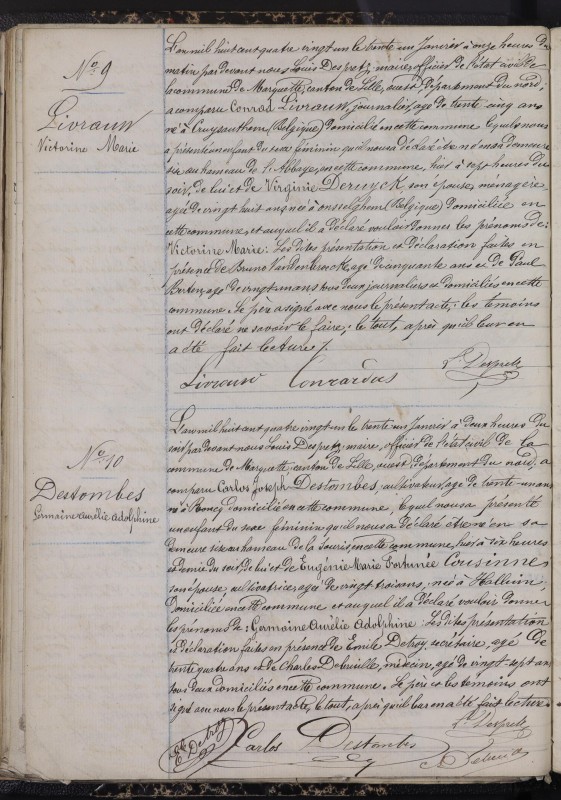 N° 9
Livraun
Victorine Marie
L'an mil huit cent quatre vingt un le trente un Janvier à onze heures du
matin par devant nous Louis Despretz, maire, officier de l'état civil de
la commune de Marquette, canton de Lille, ouest, département du nord,
a comparu Conrad Livraun, journalier, âgé de trente cinq ans
né à Cruyshautem (Belgique) domicilié en cette commune. Lequel nous
a présenté un enfant du sexe féminin qu'il nous a déclaré être né en sa demeure
sise au hameau de l'Abbaye, en cette commune, hier à sept heures du
soir, de lui et de Virginie Deruyck, son épouse, ménagère
âgée de vingt huit ans née à (Belgique) domiciliée en
cette commune, et auquel il a déclaré vouloir donner les prénoms de:
Victorine Marie: Les dites présentation et déclaration faites en
présence de Bruno Vandenbrouck, âgé de cinquante ans et de Paul
âgé de vingt-un ans tous deux journaliers et domiciliés en cette
commune. Le père a signé avec nous le présent acte, les témoins
ont déclaré ne savoir le faire, le tout, après qu'il leur en
a été fait lecture /.
L. Despretz
Livraun Conradus
N° 10
Destombes
Germaine Aurélie Adolphine
L'an mil huit cent quatre vingt un le trente un Janvier à deux heures du
soir par devant nous Louis Despretz, maire, officier de l'état civil de la
commune de Marquette, canton de Lille, ouest, département du nord, a
comparu Carlos Joseph Destombes, cultivateur, âgé de trente-un ans
né à Roncq domicilié en cette commune, Lequel nous a présenté
un enfant du sexe féminin qu'il nous a déclaré être né en sa
demeure sise au hameau de la Souris, en cette commune, hier à dix heures
et demie du soir, de lui et de Eugénie Marie Fortunée Cousinne
son épouse, cultivatrice, âgée de vingt trois ans, née à Halluin,
domiciliée en cette commune et auquel il a déclaré vouloir donner
les prénoms de: Germaine Aurélie Adolphine: Les dites présentation
et déclaration faites en présence de Emile Detroy, secrétaire, âgé de
trente quatre ans et de Charles Debuille, médecin, âgé de vingt-sept ans
tous deux domiciliés en cette commune. Le père et les témoins ont
signé avec nous le présent acte, le tout, après qu'il leur en a été fait lecture.
L. Despretz
E. Detroy Carlos Destombes